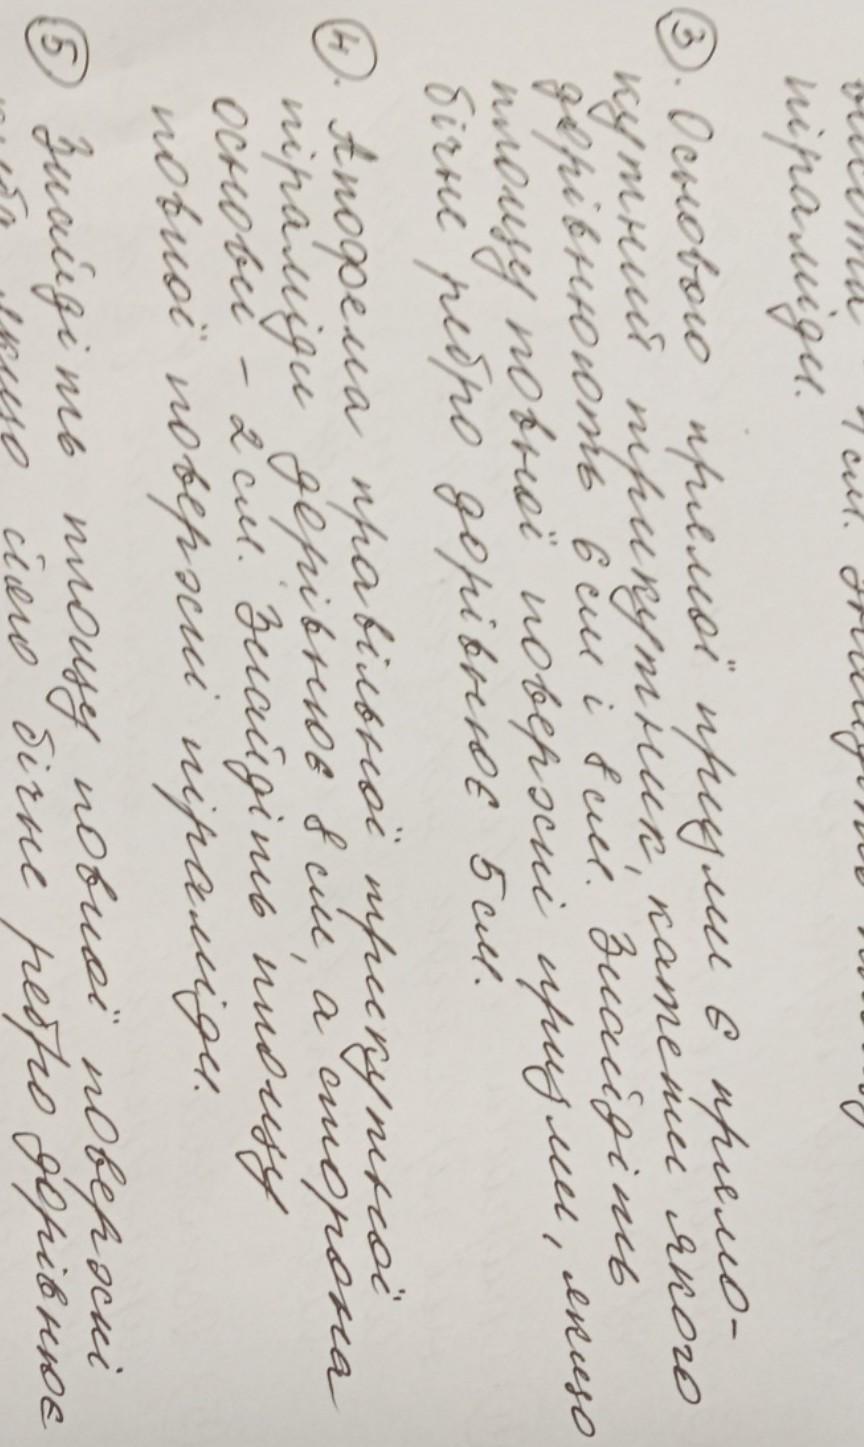 піраміди.
③. Основою прямої призми є прямо-
кутний трикутник, катети якого
дорівнюють 6 см і 8 см. Знайдіть
площу повної поверхні призми, якщо
бічне ребро дорівнює 5 см.
④. Апофема правільної трикутної
піраміди дорівнює 8 см, а сторона
основи - 2 см. Знайдіть площу
повної поверхні піраміди.
⑤ Знайдіть площу повної поверхні
якщо його бічне ребро дорівнює